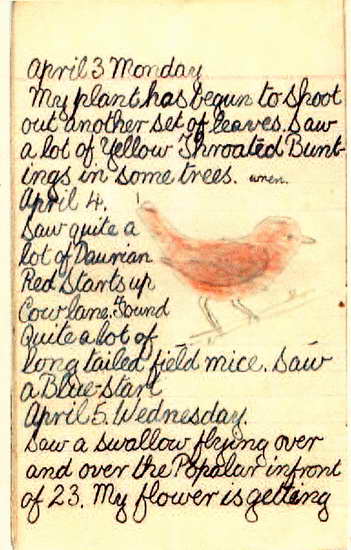 April 3 Monday
My plant has begun to shoot
out another set of leaves. Saw
a lot of Yellow Throated Bunt-
ings in some trees. wren.
April 4.
Saw quite a
lot of Daurian
Red Starts up
Cow lane. Found
Quite a lot of
long tailed field mice. Saw
a Blue-start
April 5. Wednesday.
Saw a swallow flying over
and over the Popalar infront
of 23. My flower is getting